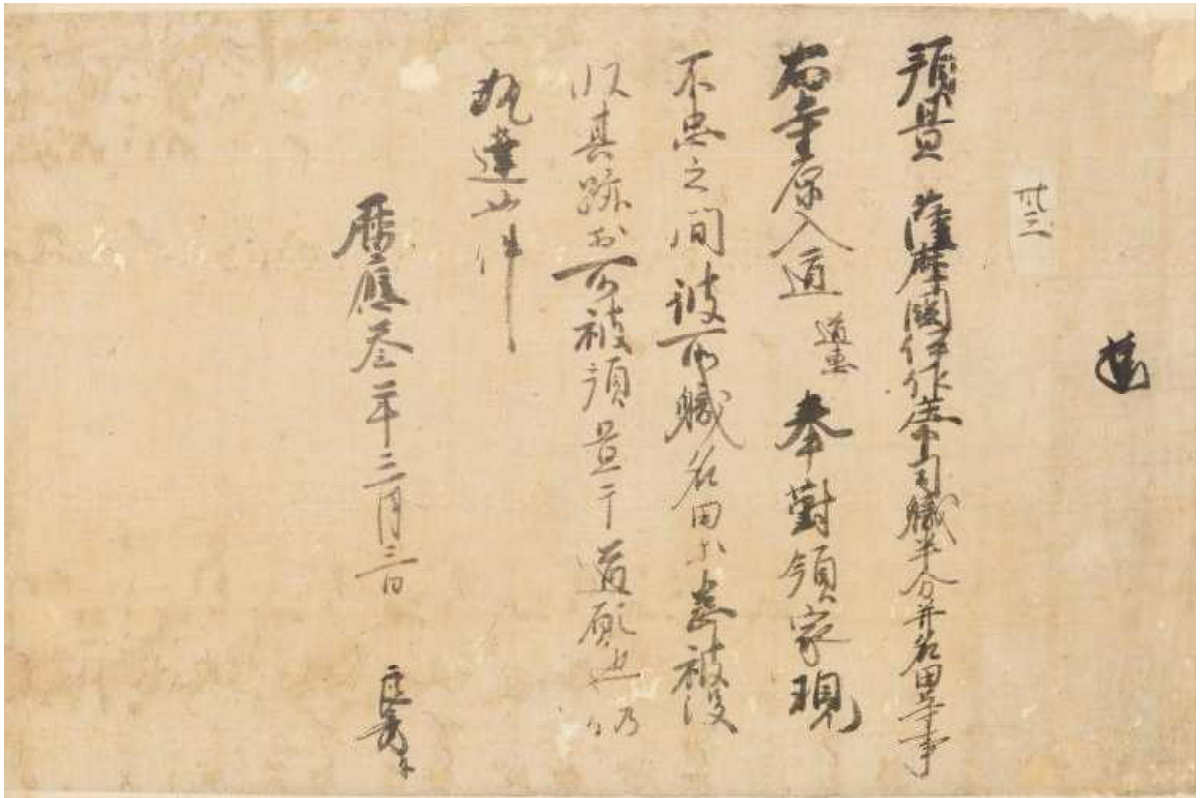 廿三
預置 薩摩國伊作庄下司職半分并名田等事
右寺原入道 道恵 奉對領家現
不忠之間彼所職名田等悉被没
收其跡お所被預置于道願也仍
執達如件
暦應参年二月三日